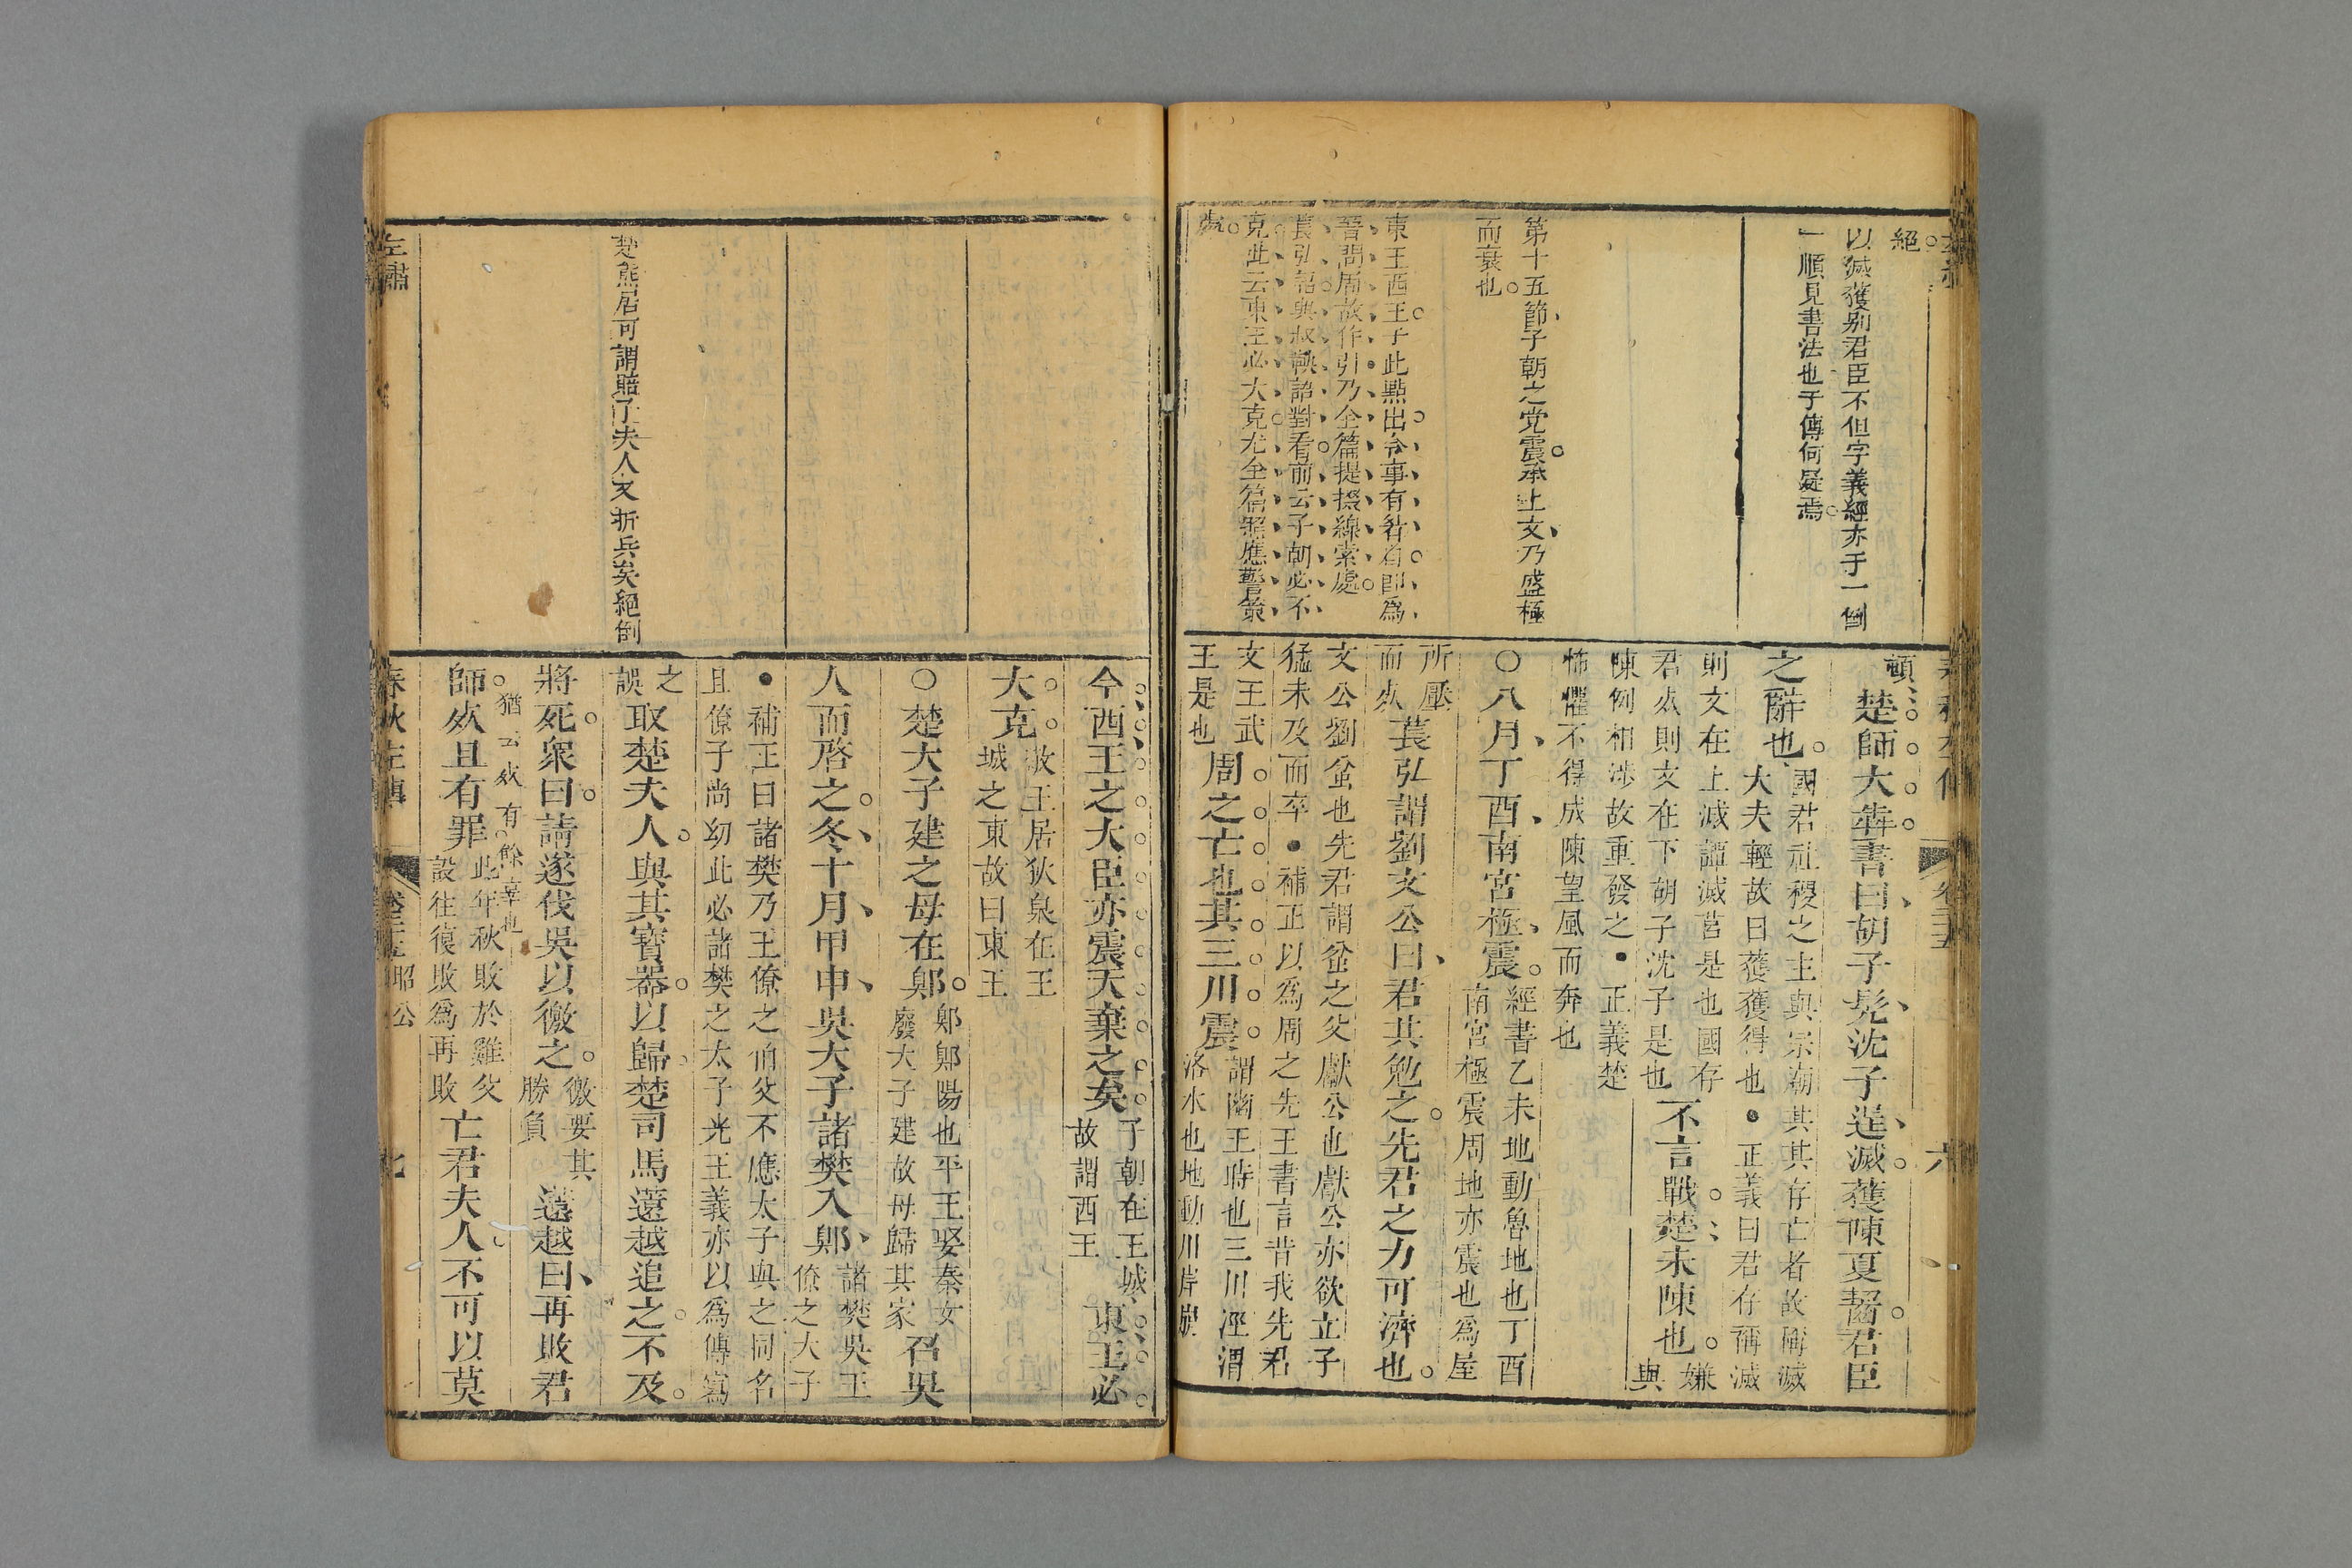 絕
以滅獲别君臣不但字義經亦于一倒
一順見書法也于傳何疑焉
第十五節子朝之党震承上文乃盛極
而衰也
東王西王于此點出令事有 看即爲
晉問周故作引乃全篇提掇線索處
萇弘語與叔鞅語對看前云子朝必不
克此云東王必大克尤全篇照應警策
處
頓楚師大犇書曰胡子髠沈子逞滅獲陳夏齧君臣
之辭也國君社稷之主與宗廟共其存亡者故稱滅大夫輕故曰獲獲得也●正義曰君存稱滅
則文在上滅譚滅莒是也國存君死則文在下胡子沈子是也不言戰楚未陳也嫌與
陳例相涉故重發之●正義楚怖懼不得成陳望風而奔也
○八月丁酉南宫極震經書乙未地動魯地也丁酉南宫極震周地亦震也為屋
所壓而死萇弘謂劉文公曰君其勉之先君之力可濟也
文公劉蚠也先君謂蚠之父獻公也獻公亦欲立子猛未及而卒●補正以為周之先王書言昔我先君
文王武王是也周之亡也其三川震謂幽王時也三川涇渭洛水也地動川岸崩
楚熊居可謂賠了夫人又折兵矣絕倒
左繡
今西王之大臣亦震天棄之矣子朝在王城故謂西王東王必
大克敬王居狄泉在王城之東故曰東王
○楚大子建之母在郹郹郹陽也平王娶秦女廢大子建故母歸其家召吳
人而啓之冬十月甲申吳大子諸樊入郹諸樊吳王僚之大子
●補正曰諸樊乃王僚之伯父不應太子與之同名且僚子尚幼此必諸樊之太子光王義亦以為傳寫
之誤取楚夫人與其寶器以歸楚司馬薳越追之不及
將死衆曰請遂伐吳以徼之徼要其勝負薳越曰再敗君
猶云死有餘辜也
師死且有罪此年秋敗於雞父設往復敗爲再敗亡君夫人不可以莫
春秋左傳 昭公 七